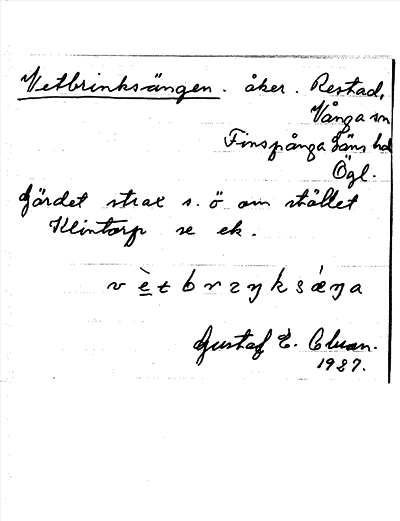 Vetbrinksängen. åker. Restad,
Vånga sn
Finspånga läns hd
Ögl.
Gärdet strax s. ö om stället
Klintorp se ek.
v è̲ t b r ɪ ŋ k s ǽ ŋ a
Gustaf E.
1927.